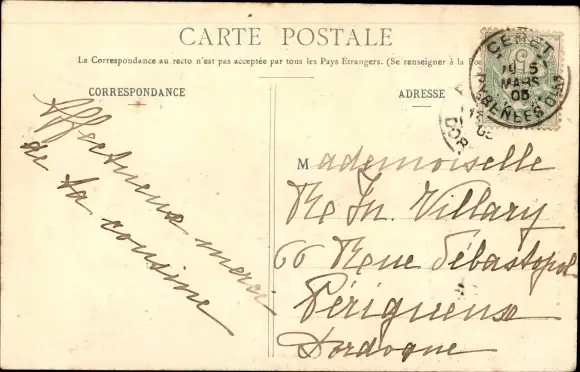 CARTE POSTALE
La Correspondance au recto n'est pas acceptée par tous les Pays Etrangers. (Se renseigner à la
CORRESPONDANCE
Affectueux merci
de ta cousine
ADRESSE
CERET
5
MARS
05
PYRÉNÉES
Mademoiselle
Villary
66 Rue Sébastopol
Périgueux
Dordogne